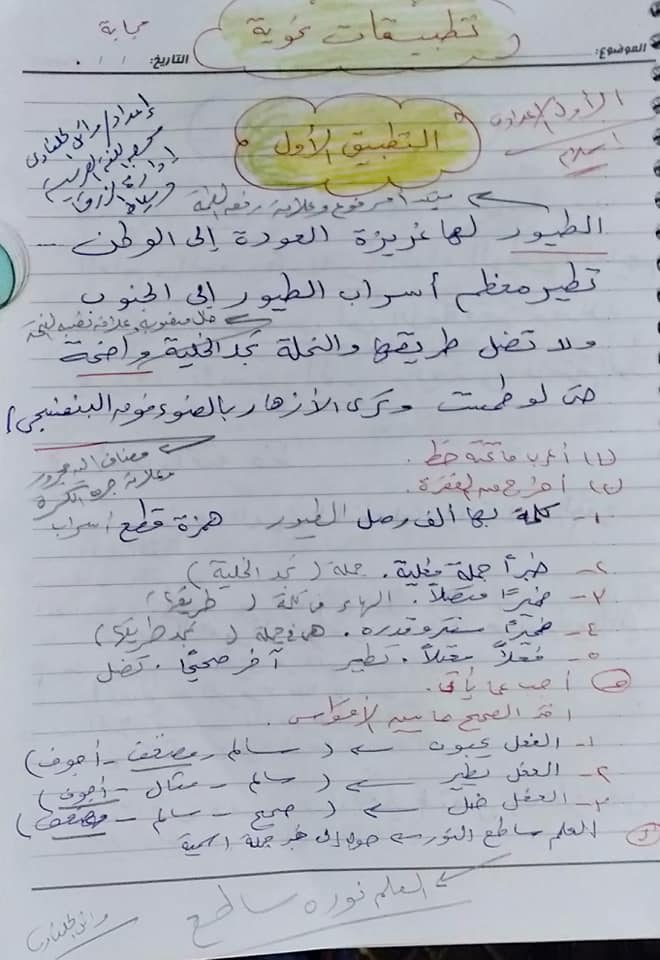 مجابة
تطبيقات نحوية
الموضوع:
التاريخ: / /
الأول الإعدادى
إسلام
التطبيق الأول
إعداد/ وائل
اللغة العربية
إدارة الزرقا
مبتدأ مرفوع وعلامة رفعه الضمة
الطيور لها غريزة العودة إلى الوطن
تطير معظم أسراب الطيور إلى الجنوب
حال منصوبة وعلامة نصبه الفتحة
ولا تضل طريقها والنحلة تجد الخلية واضحة
حتى لو طمست وترى الأزهار بالضوء فوق البنفسجي)
مضاف إليه مجرور
وعلامة جره الكسرة
(١) أعرب ما تحته خط.
(٢) أخرج من الفقرة.
١- كلمة بها ألف وصل الطيور همزة قطع أسراب
٢- خبراً جملة فعلية. جملة (تجد الخلية)
٣- ضميرًا متصلاً. الهاء في كلمة (طريقها)
٤- ضميرًا مستترًا وقدره. هى فى جملة (تجد طريقها)
٥- فعلاً معتلاً. تطير آخر صحيحًا. تضل
أجب عما يأتى.
اختر الصحيح مما بين الأقواس.
١- الفعل ← (سالم - مضعف - أجوف)
٢- الفعل يطير ← (سالم - مثال - أجوف)
٣- الفعل ضل ← (صحيح - سالم - مضعف)
العلم ساطع النور ← حول إلى خبر جملة اسمية
← العلم نوره ساطع
وائل